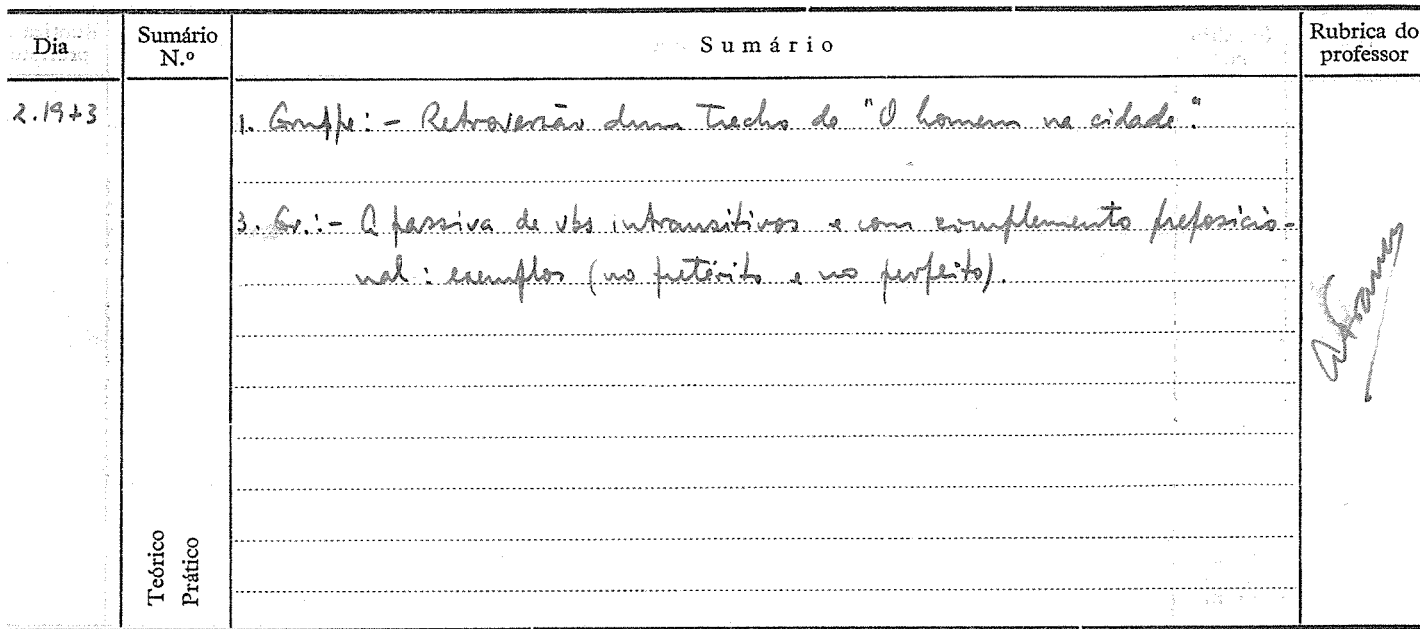 Dia
Sumário N.º
Sumário
Rubrica do professor
2.1973
1. Gruppe: - Retroversão dum trecho de "O homem na cidade".
3. Gr.: - A passiva de vbs intransitivos e com complemento preposicio-
nal: exemplos (no pretérito e no perfeito).
Teórico
Prático